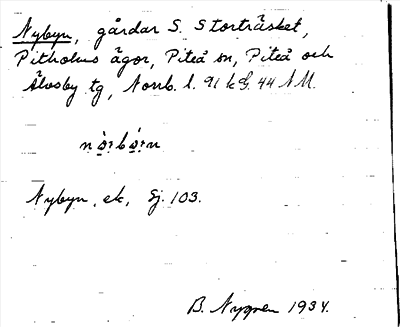 Nybyn, gårdar S. Storträsket,
Pitholms ägor, Piteå sn, Piteå och
Älvsby tg, Norrb. l. 91 k G. 44 NM.
Nybyn, ek, Gj. 103.
B. Nygren 1934.